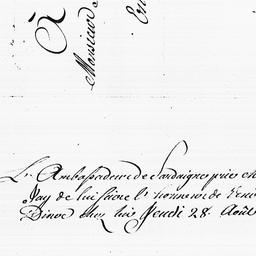 À
Monsieur
En
L'Ambassadeur de Sardaigne prie
Jay de lui faire l'honneur de Venir
Diner chez lui Jeudi 28 Août